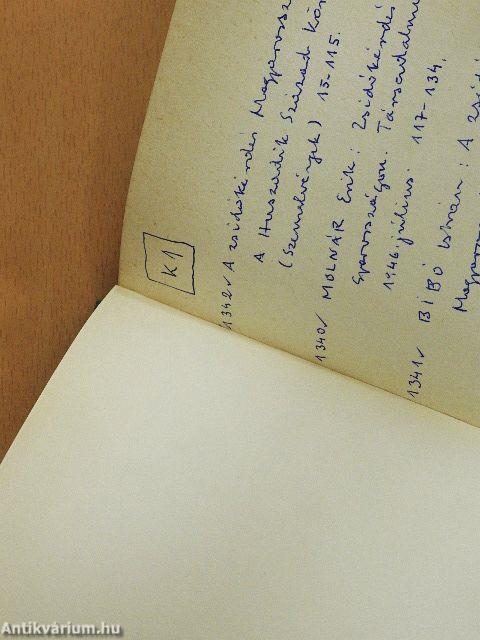 K1
1342✓ A zsidókérdés Magyarorsz
A Huszadik Század kör
(Szemelvények) 15-115.
1340✓ MOLNÁR Erik: Zsidókérdés
gyarországon. Társadalmi
1946. július. 117-134.
1341✓ BIBÓ István: A zsidó
Magyarorsz
Antikvárium.hu